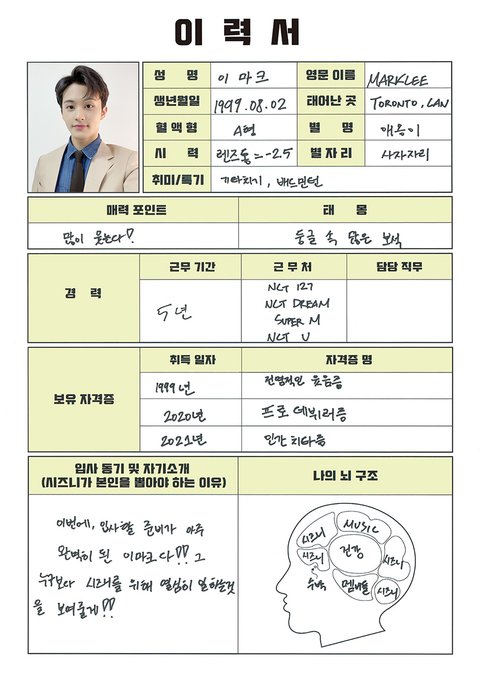 이 력 서
성 명 이 마크 영문 이름 MARKLEE
생년월일 1999.08.02 태어난 곳 TORONTO, CAN
혈 액 형 A형 별 명 애옹이
시 력 렌즈둘 = -25 별 자 리 사자자리
취미/특기 기타치기, 배드민턴
매력 포인트 태 몽
많이 웃는다! 동굴 속 많은 보석
경 력 근무 기간 근 무 처 담당 직무
5년
NCT 127
NCT DREAM
SUPER M
NCT U
보유 자격증 취득 일자 자격증 명
1999년
2020년 프로 데뷔러증
2021년 인간 치타증
입사 동기 및 자기소개
(시즈니가 본인을 뽑아야 하는 이유)
이번에, 입사할 준비가 아주
완벽히 된 이마크다!! 그
누구보다 시즈니를 위해 열심히 일하는것
을 보여줄게!!
나의 뇌 구조
시즈니 MUSIC
시즈니 건강 시즈니
수박 멤버들 시즈니